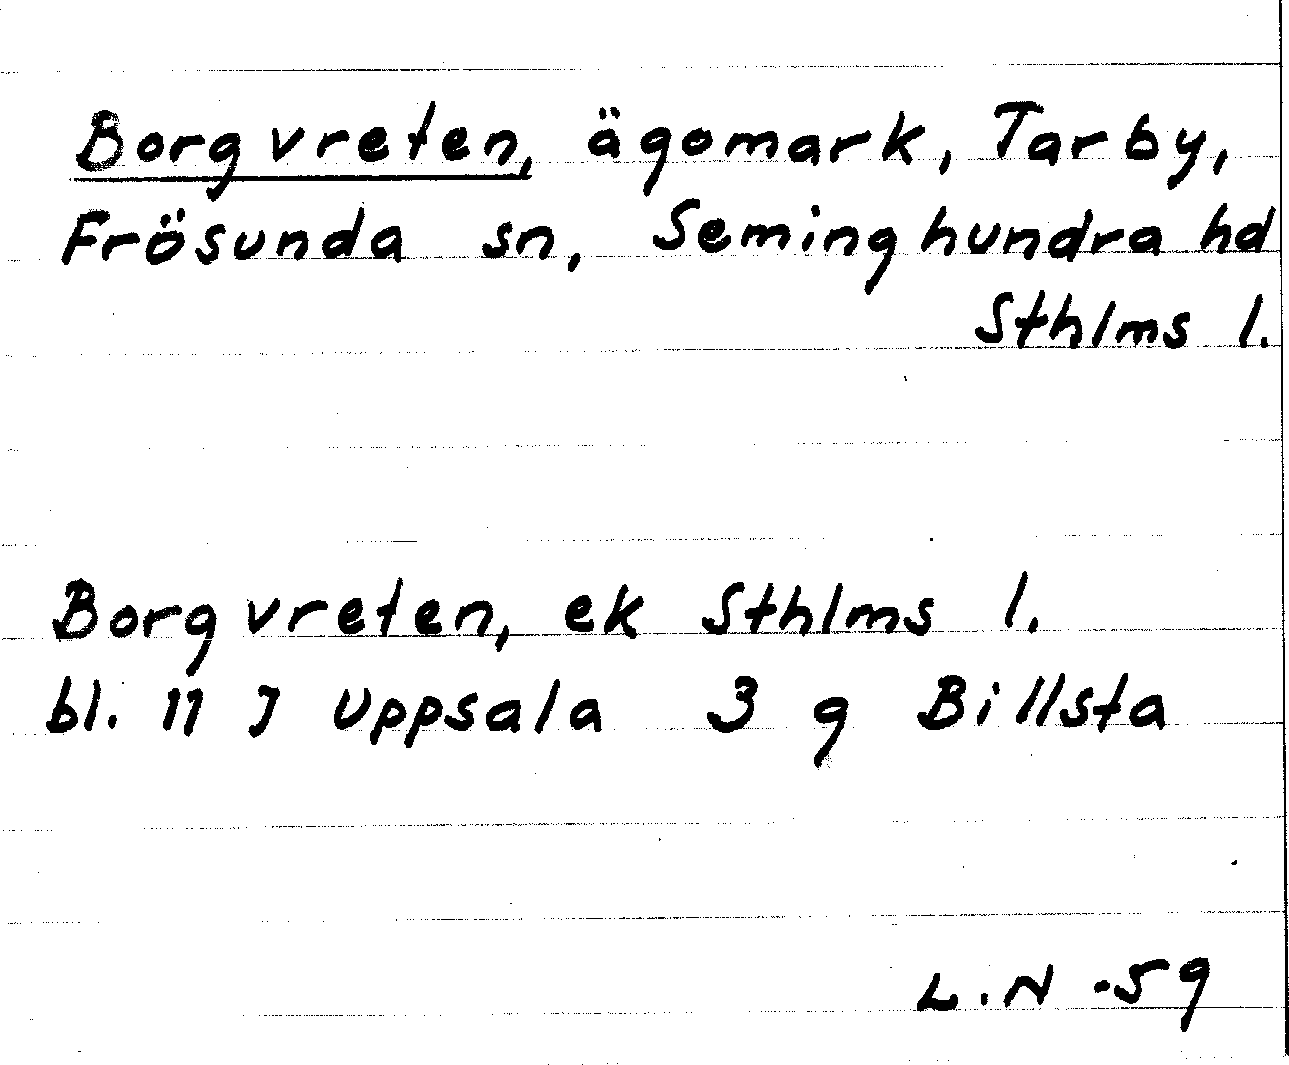 Borgvreten, ägomark, Tarby,
Frösunda sn, Seminghundra hd
Sthlms l.
Borgvreten, ek Sthlms l.
bl. 11 J Uppsala 3 g Billsta
L.N -59